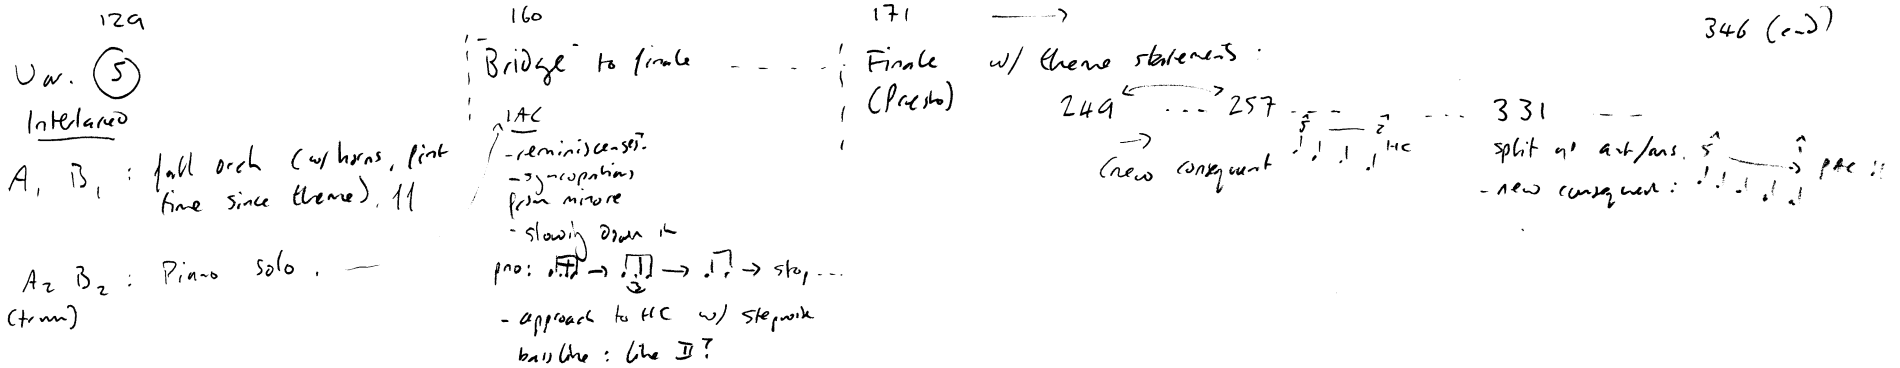 129
Var. 5
Interlaced
A1 B1 : full orch (w/ horns, first
time since theme). ff
A2 B2 : Piano solo. —
(trans)
160
"Bridge" to finale
IAC
- reminiscenses.
- syncopations
from minore
- slowing down in
pno: → → → stop ...
3
- approach to HC w/ stepwise
bassline : like II?
171 →
Finale w/ theme statements :
(Presto)
249 ... 257 ... 331
→
(new consequent 5 — 2 HC
split up ant/ans.
- new consequent : 5 → 1 PAC !!
346 (end)